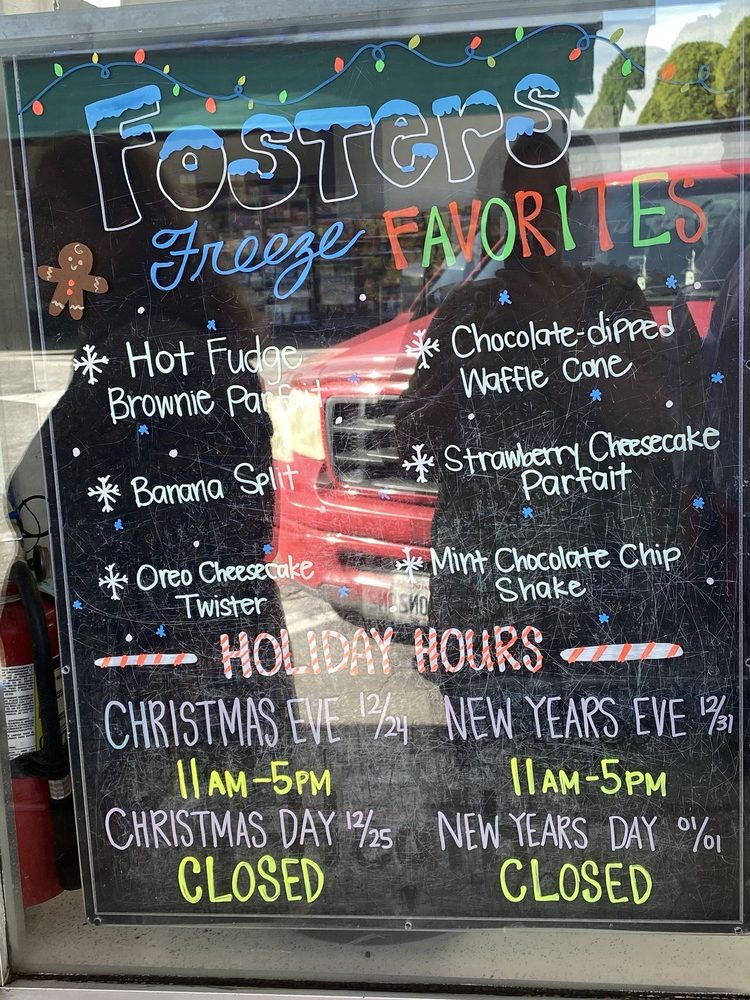 Fosters
Freeze FAVORITES
Hot Fudge
Brownie Parfait
Banana Split
Oreo Cheesecake
Twister
Chocolate-dipped
Waffle Cone
Strawberry Cheesecake
Parfait
Mint Chocolate Chip
Shake
HOLIDAY HOURS
CHRISTMAS EVE 12/24
11AM-5PM
CHRISTMAS DAY 12/25
CLOSED
NEW YEARS EVE 12/31
11AM-5PM
NEW YEARS DAY 01/01
CLOSED